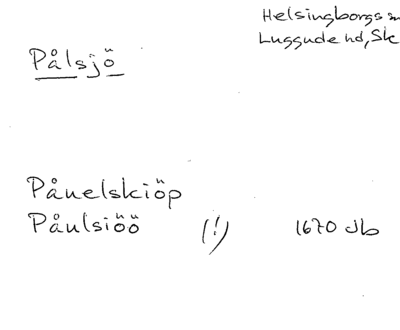 Helsingborgs sn
Luggude hd, Sk
Pålsjö
Pånelskiöp
Påulsiöö (!) 1670 Jb